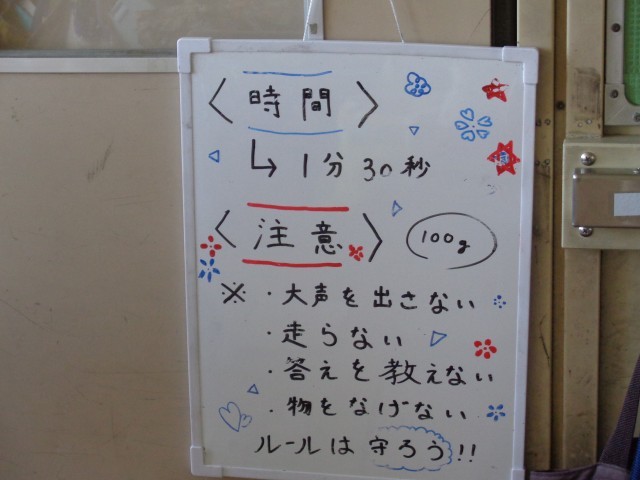 〈時間〉
↳1分30秒
〈注意〉 100g
※・大声を出さない
・走らない
・答えを教えない
・物をなげない
ルールは守ろう!!